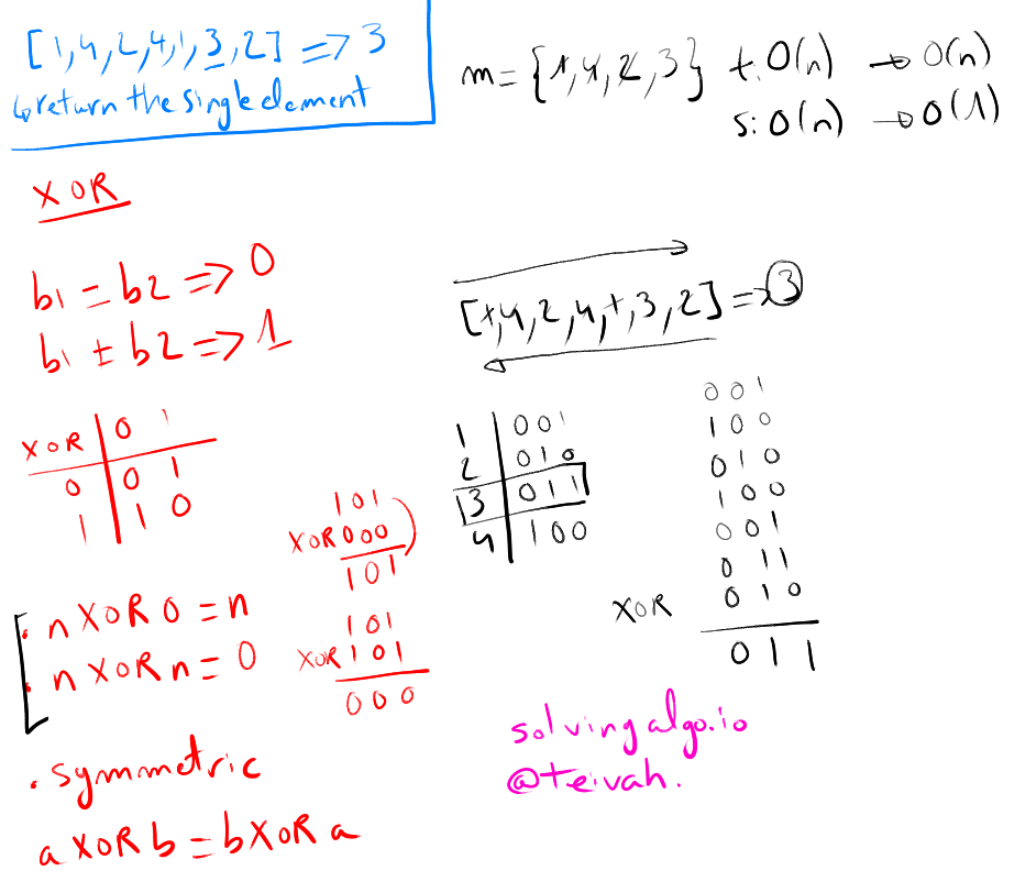 [1,4,2,4,1,3,2] => 3
↳ return the single element
m = {1,4,2,3} t: O(n) → O(n)
s: O(n) → O(1)
XOR
b1 = b2 => 0
b1 ≠ b2 => 1
XOR | 0 1
0 | 0 1
1 | 1 0
101
XOR 000
101
n XOR 0 = n
n XOR n = 0
101
XOR 101
000
. symmetric
a XOR b = b XOR a
[1,4,2,4,1,3,2] => 3
1 | 001
2 | 010
3 | 011
4 | 100
001
100
010
100
001
011
XOR 010
011
solvingalgo.io
@teivah.